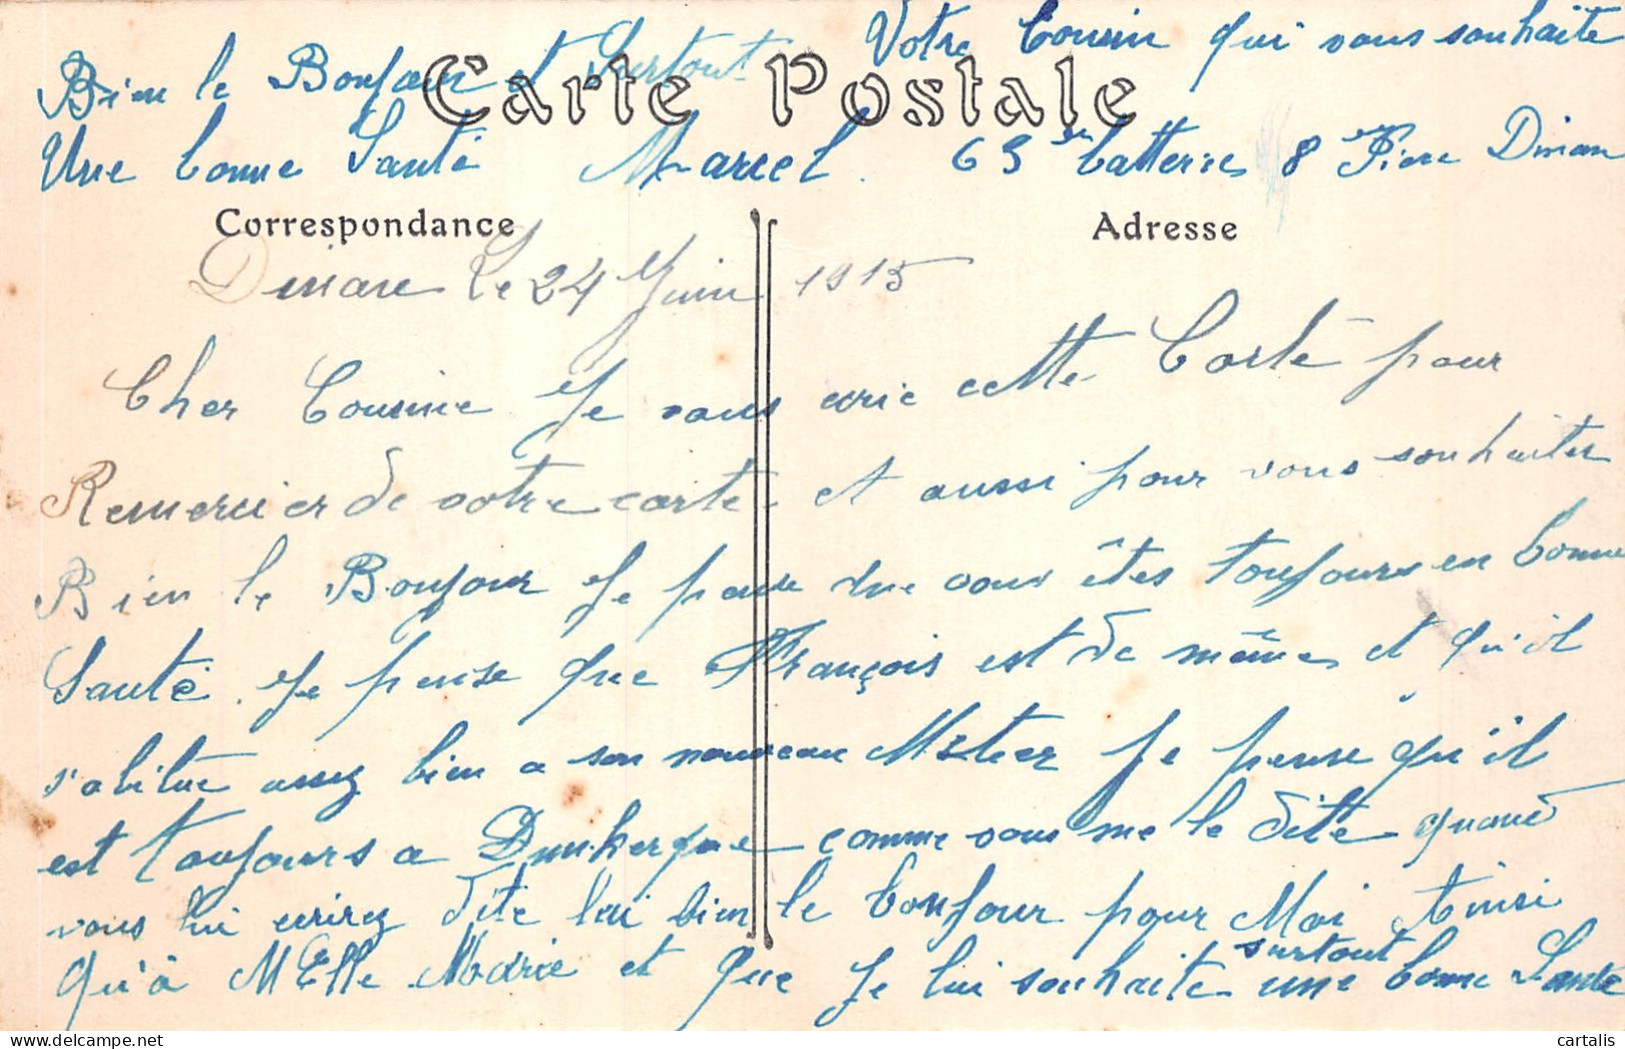 Votre Cousin qui vous souhaite
Bien le Bonjour et Surtout
Carte Postale
Une bonne Santé Marcel. 63 batteries 8 Pièce Dinan
Correspondance Adresse
Dinan Le 24 Juin 1915
Cher Cousine Je vous écrie cette Carte pour
Remercier de votre carte et aussi pour vous souhaiter
Bien le Bonjour Je pense que vous êtes toujours en bonne
Santé. Je pense que François est de même et qu'il
s'abitue assez bien a son nouveau Métier Je pense qu'il
est toujours a Dunkerque comme vous me le dite quand
vous lui ecrirez dite lui bien le bonjour pour Moi Ainsi
qu'à MElle Marie et que Je lui souhaite surtout une bonne Santé
cartalis